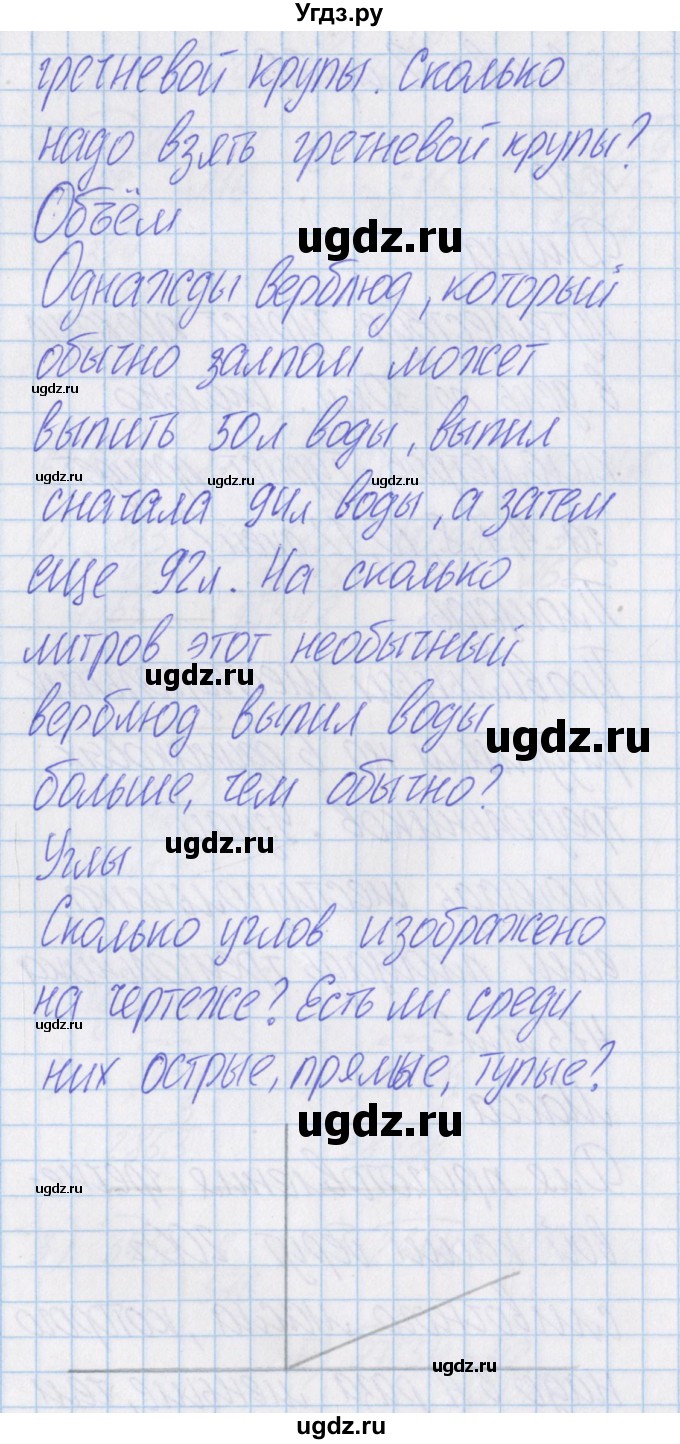 Угдз.ру
гречневой крупы. Сколько
надо взять гречневой крупы?
Объём
ugdz.ru
Однажды верблюд, который
обычно залпом может
ugdz.ru
выпить 50л воды, выпил
ugdz.ru ugdz.ru ugdz.ru
сначала 94л воды, а затем
еще 92л. На сколько
литров этот необычный
ugdz.ru
верблюд выпил воды
ugdz.ru
больше, чем обычно?
ugdz.ru
Углы
Сколько углов изображено
на чертеже? Есть ли среди
ugdz.ru
них острые, прямые, тупые?
ugdz.ru
ugdz.ru
ugdz.ru
ugdz.ru